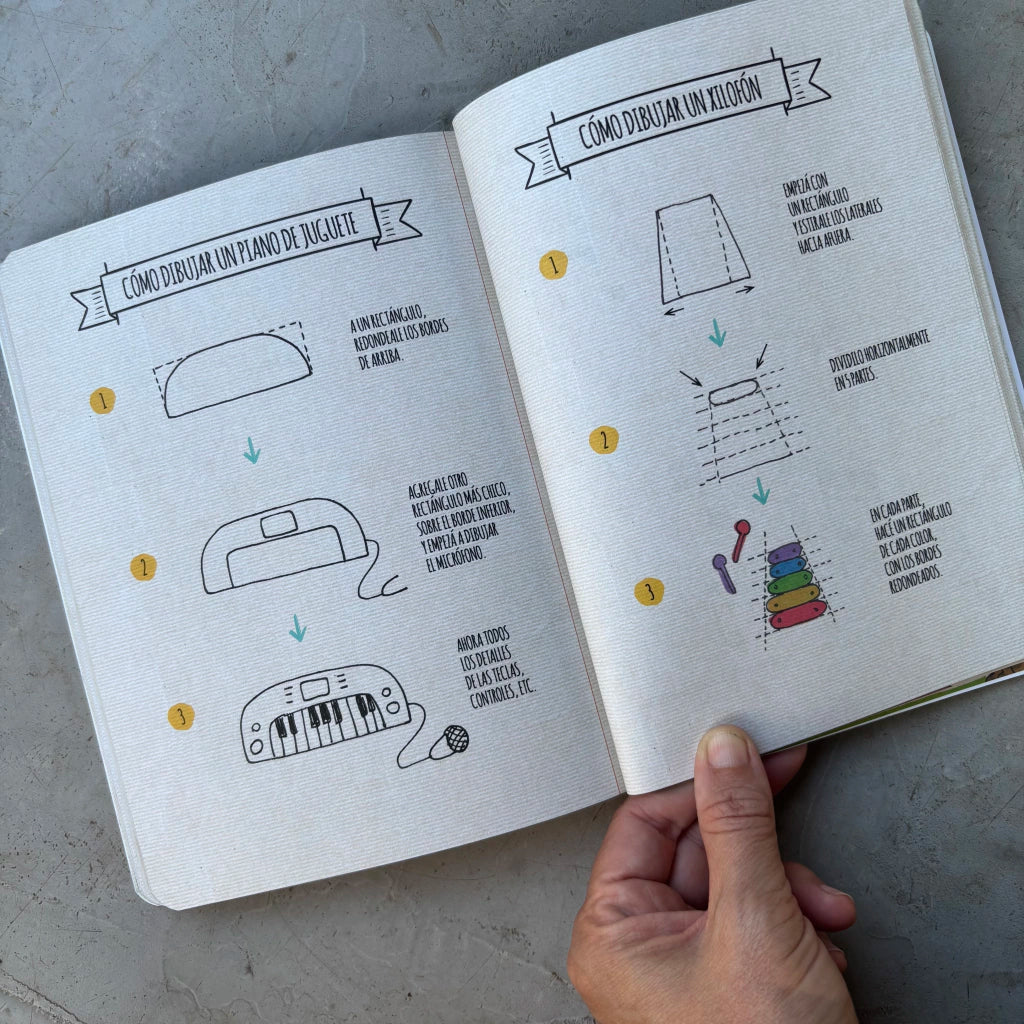 CÓMO DIBUJAR UN PIANO DE JUGUETE
1
A UN RECTÁNGULO,
REDONDEALE LOS BORDES
DE ARRIBA.
2
AGREGALE OTRO
RECTÁNGULO MÁS CHICO,
SOBRE EL BORDE INFERIOR,
Y EMPEZÁ A DIBUJAR
EL MICRÓFONO.
3
AHORA TODOS
LOS DETALLES
DE LAS TECLAS,
CONTROLES, ETC.
CÓMO DIBUJAR UN XILOFÓN
1
EMPEZÁ CON
UN RECTÁNGULO
Y ESTIRALE LOS LATERALES
HACIA AFUERA.
2
DIVIDILO HORIZONTALMENTE
EN 5 PARTES.
3
EN CADA PARTE,
HACÉ UN RECTÁNGULO
DE CADA COLOR,
CON LOS BORDES
REDONDEADOS.